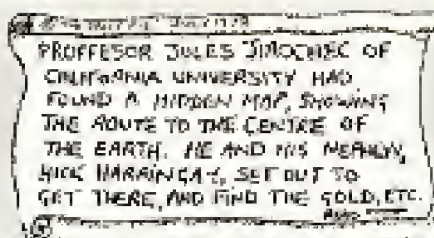 PROFFESOR JULES OF
CALIFORNIA UNIVERSITY HAD
FOUND A HIDDEN MAP, SHOWING
THE ROUTE TO THE CENTRE OF
THE EARTH. HE AND HIS NEPHEW,
HICK SET OUT TO
GET THERE, AND FIND THE GOLD, ETC.